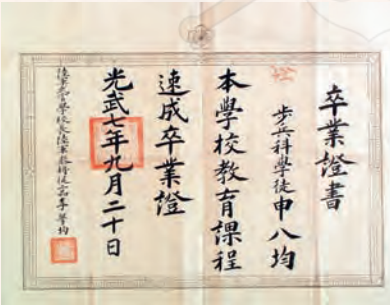 卒業證書
步兵科學徒申八均
本學校教育課程
速成卒業證
光武七年九月二十日
陸軍武官學校長陸軍參將從二品李學均